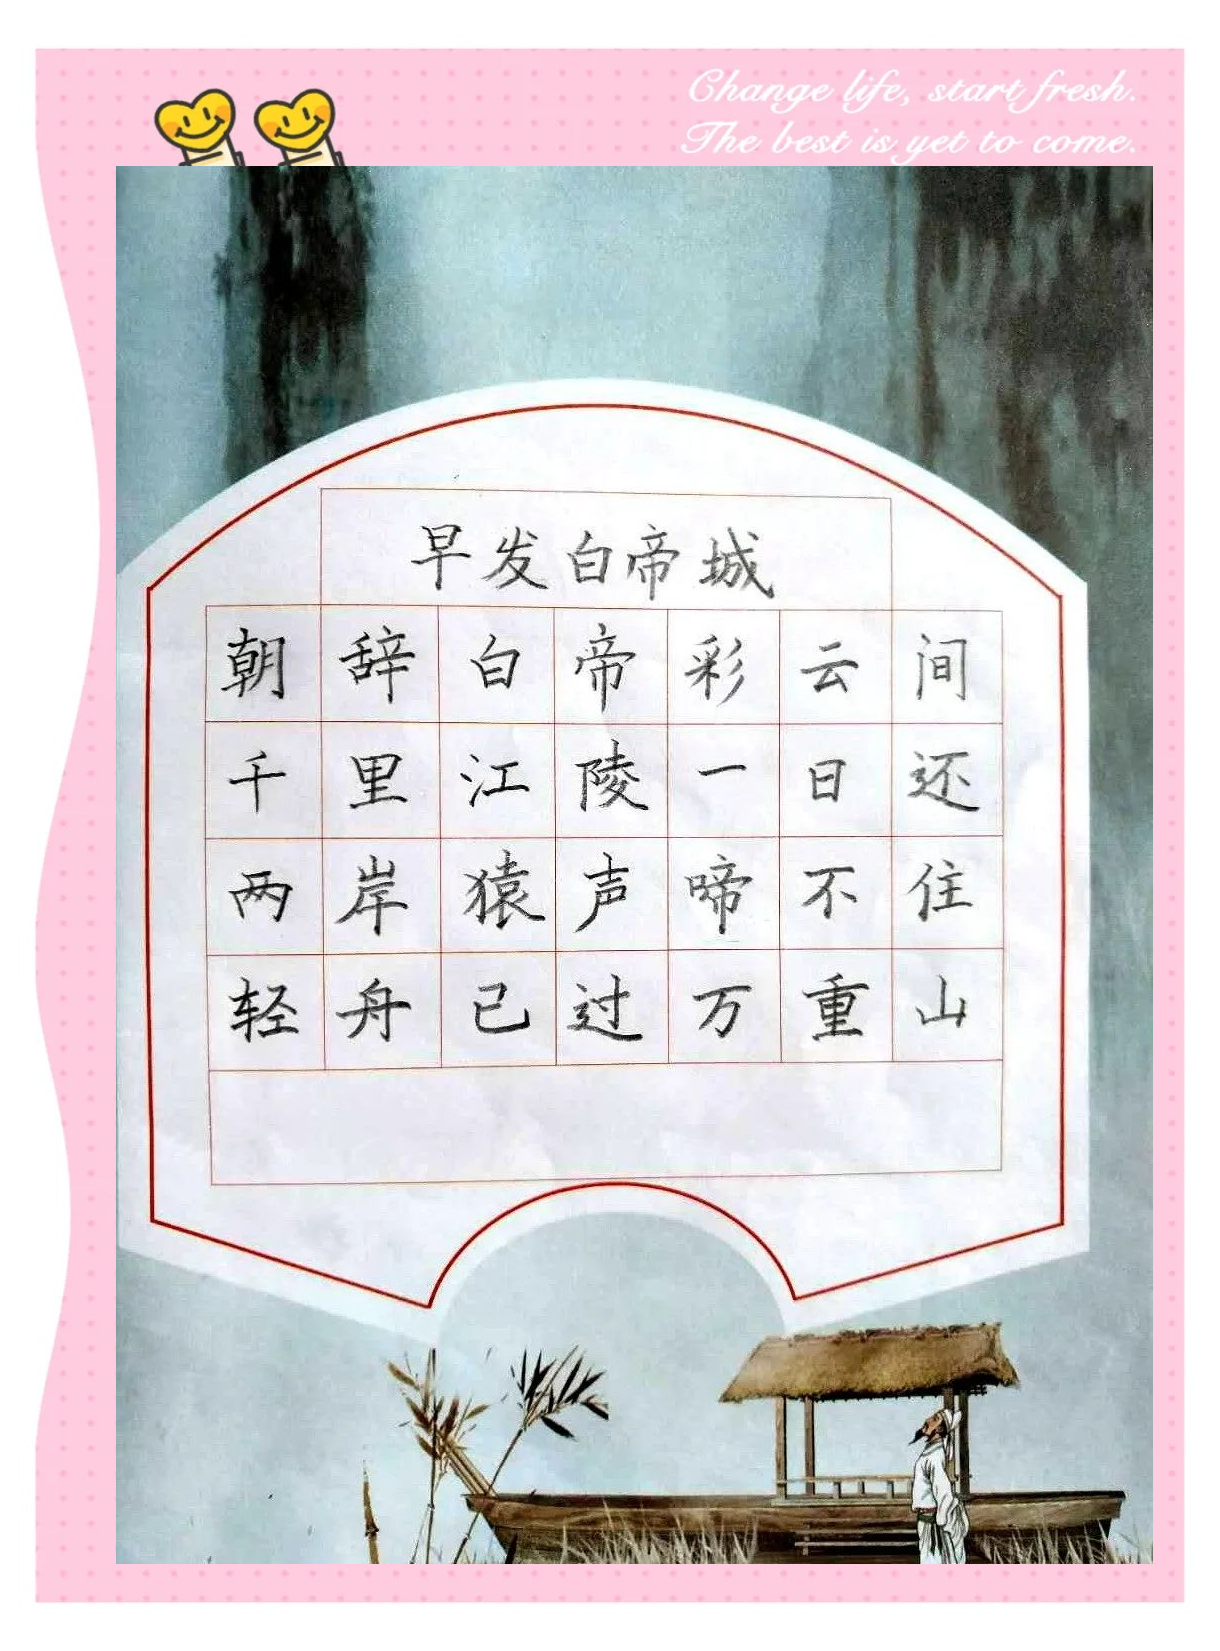 Change life, start fresh.
The best is yet to come.
早发白帝城
朝辞白帝彩云间
千里江陵一日还
两岸猿声啼不住
轻舟已过万重山